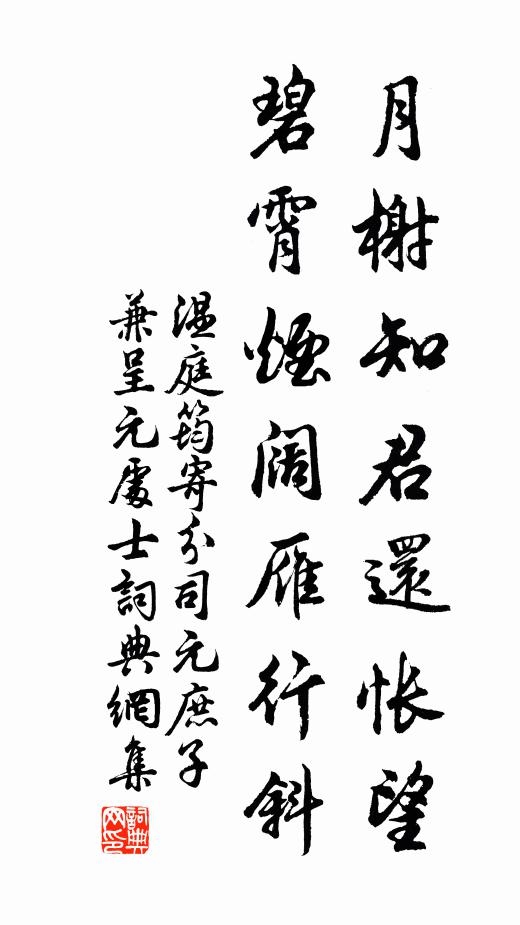 月榭知君還悵望
碧霄煙闊雁行斜
溫庭筠寄分司元庶子
兼呈元處士詞典網集
詞典网印